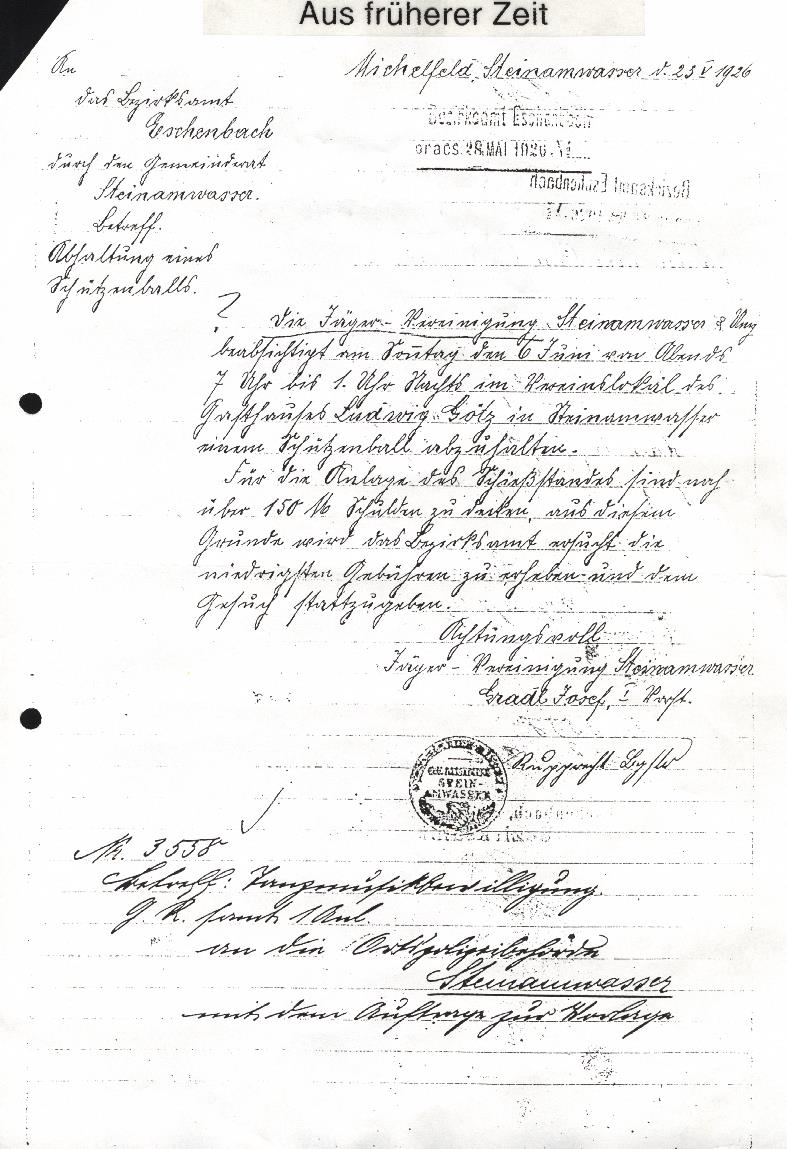 Aus früherer Zeit
An
das Bezirksamt
Eschenbach
durch den Gemeinderat
Steinamwasser.
Betreff.
Abhaltung eines
Schützenballs.
Michelfeld, Steinamwasser d. 23 V 1926
Bezirksamt Eschenbach
praes. 28. MAI 1926
Bezirksamt Eschenbach
? Die Jäger-Vereinigung Steinamwasser & Umg
beabsichtigt am Sontag den 6 Juni von Abends
7 Uhr bis 1. Uhr Nachts im Vereinslokal des
Gasthauses Ludwig Götz in Steinamwasser
einem Schützenball abzuhalten.
Für die Anlage des Schießstandes sind noch
über 150 M Schulden zu decken, aus diesem
Grunde wird das Bezirksamt ersucht die
niedrigsten Gebühren zu erheben und dem
Gesuch stattzugeben.
Achtungsvoll
Jäger-Vereinigung Steinamwasser
Gradl Josef, I Vorst.
GEMEINDE
STEIN-
AMWASSER
Rupprecht Bgstr
Nr. 3558
Betreff: Tanzmusikbewilligung.
G. R. samt 1 Anl.
an die Ortspolizeibehörde
Steinamwasser
mit dem Auftrage zur Vorlage